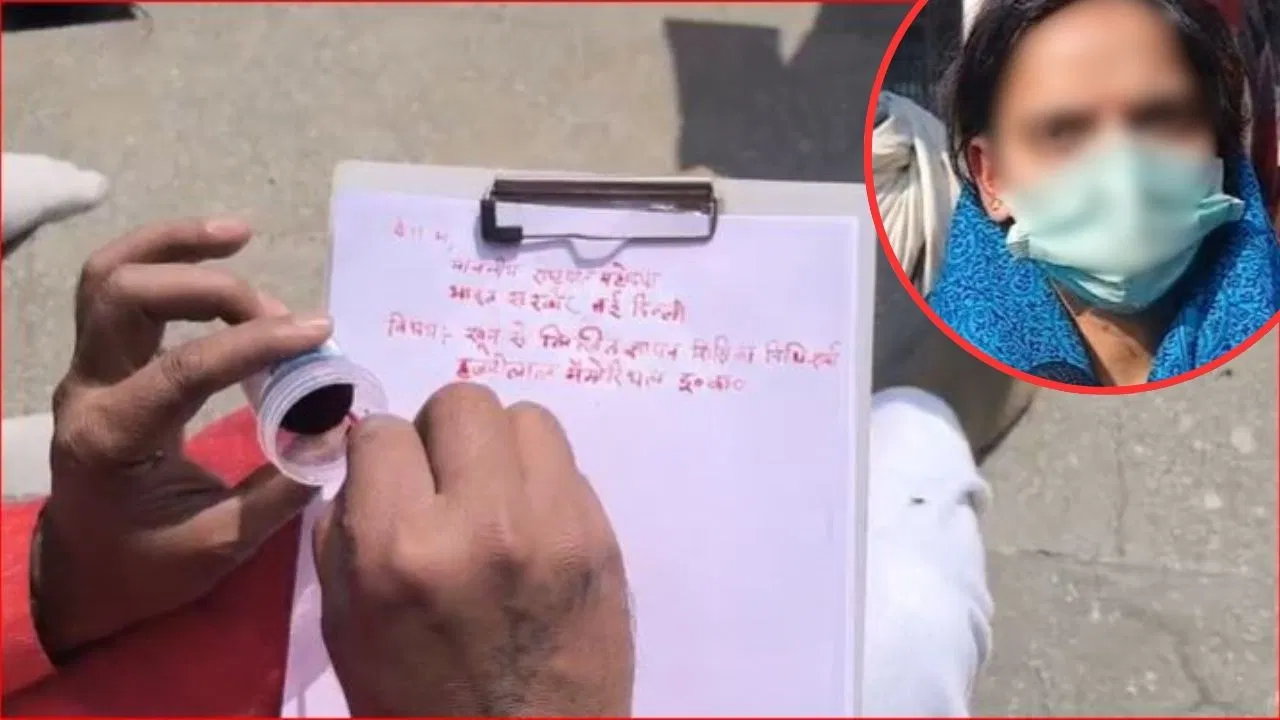 सेवा में,
माननीय राष्ट्रपति महोदया
भारत सरकार नई दिल्ली
विषय:- खून से लिखित ज्ञापन
हजारीलाल मेमोरियल